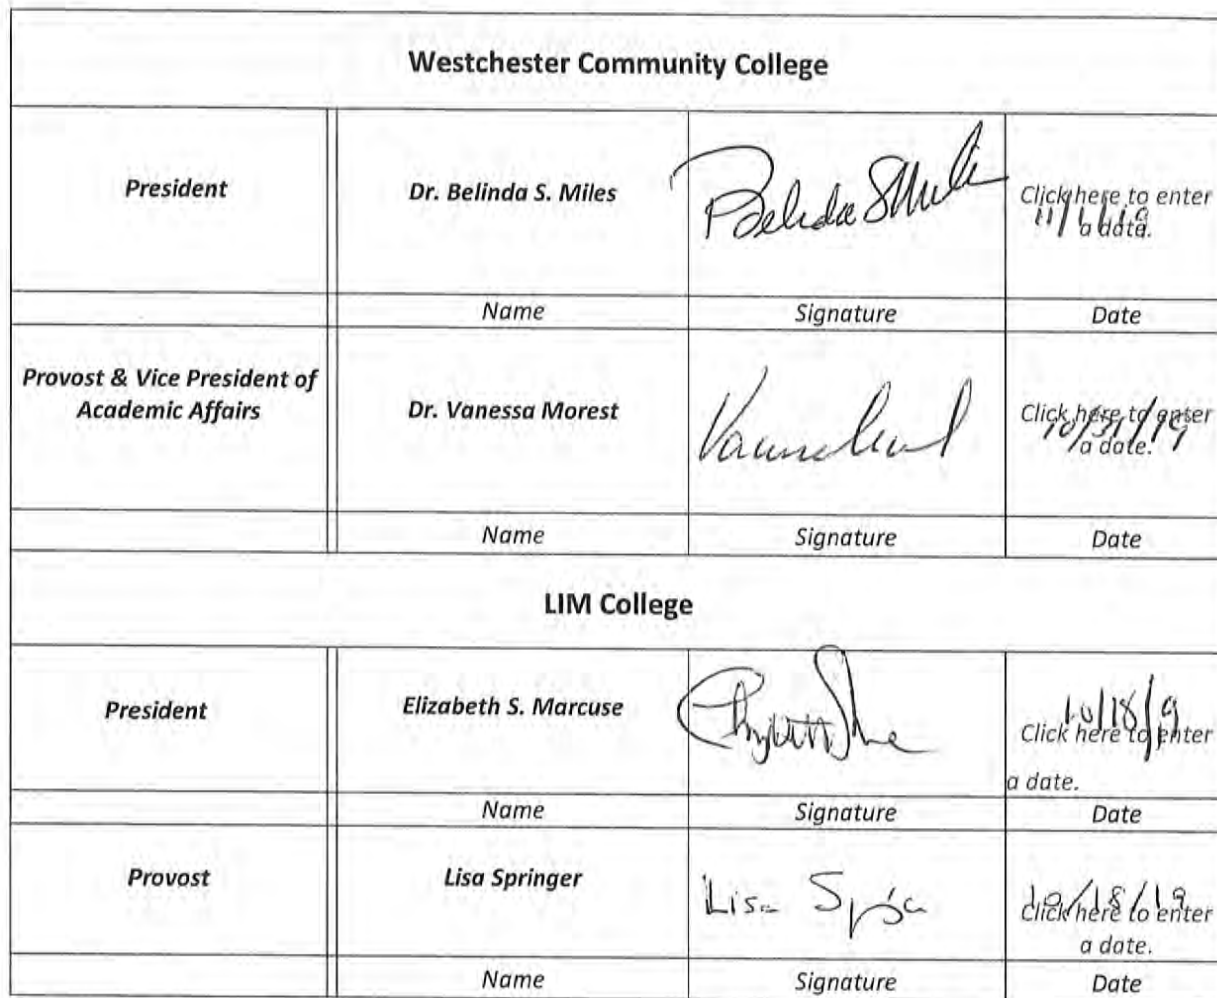 Westchester Community College
President
Dr. Belinda S. Miles
Belinda S Miles
Click here to enter
a date.
11/1/19
Name Signature Date
Provost & Vice President of
Academic Affairs
Dr. Vanessa Morest
Click here to enter
a date.
10/31/19
Name Signature Date
LIM College
President
Elizabeth S. Marcuse
10/18/19
Click here to enter
a date.
Name Signature Date
Provost
Lisa Springer
Lisa
10/18/19
Click here to enter
a date.
Name Signature Date